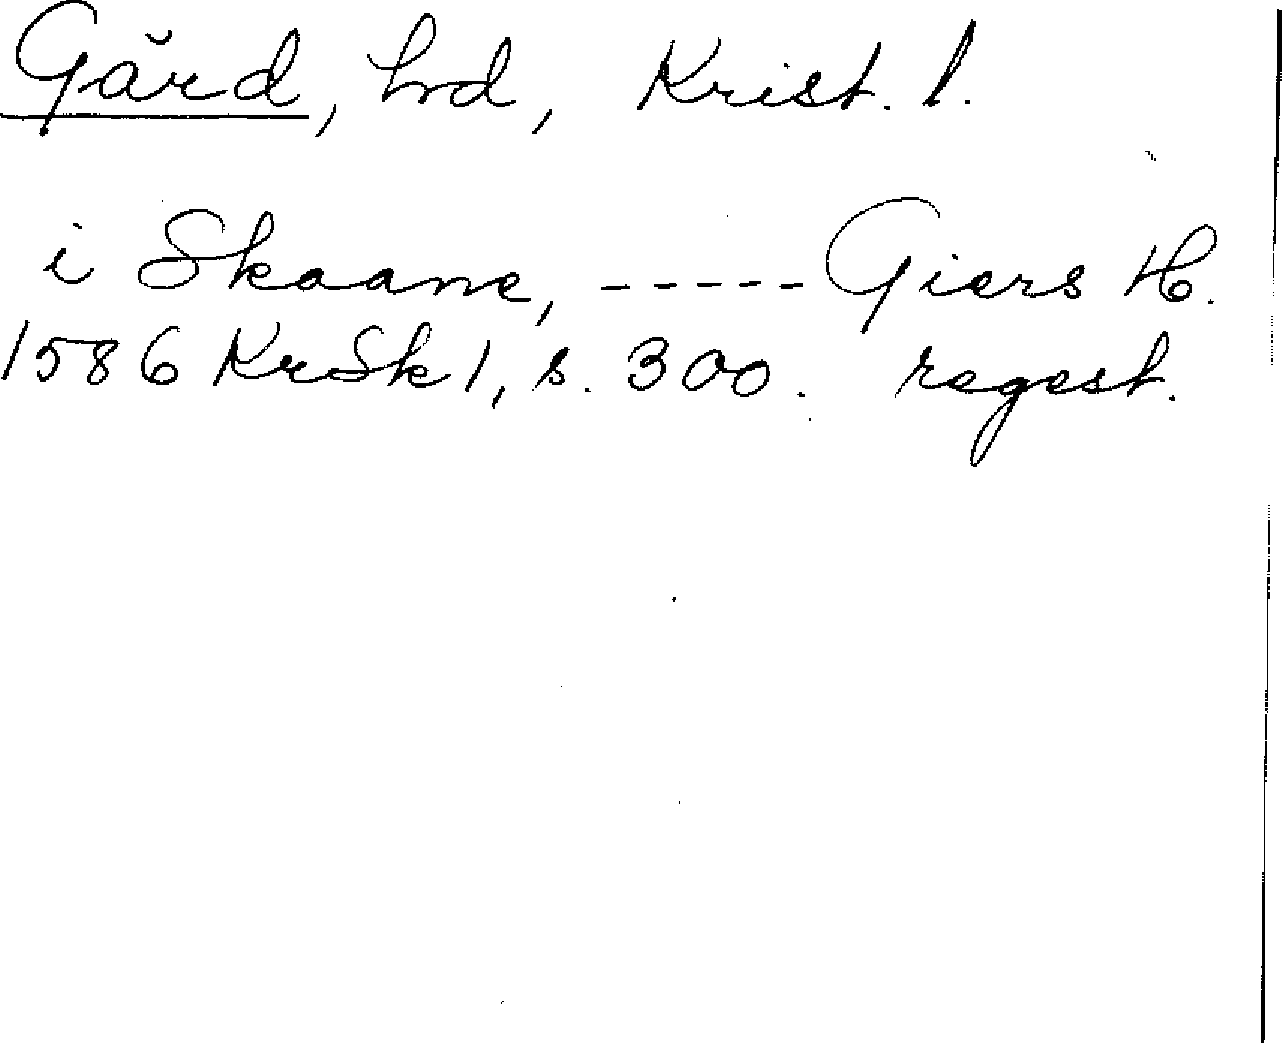 Gärd, hd, Krist. l.
i Skaane, ----- Giers H.
1586 KrSk 1, s. 300. regest.